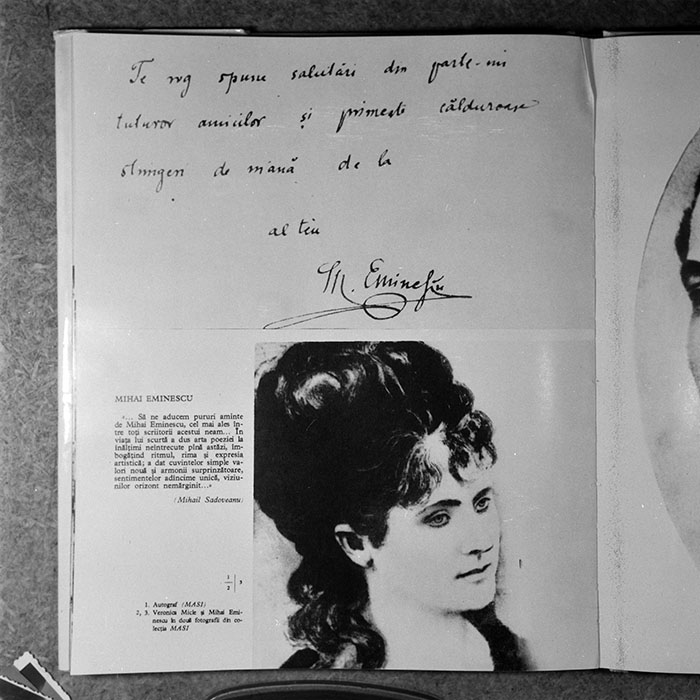 Te rog spune salutări din parte-mi
tuturor amicilor și primește călduroase
stîngeri de mană de la
al teu
M. Eminescu
MIHAI EMINESCU
«... Să ne aducem pururi aminte
de Mihai Eminescu, cel mai ales în-
tre toți scriitorii acestui neam... În
viața lui scurtă a dus arta poeziei la
înălțimi neîntrecute pînă astăzi, îm-
bogățind ritmul, rima și expresia
artistică; a dat cuvintelor simple va-
lori nouă și armonii surprinzătoare,
sentimentelor adîncime unică, viziu-
nilor orizont nemărginit...»
(Mihail Sadoveanu)
1
2 | 3
1. Autograf (MASI)
2, 3. Veronica Micle și Mihai Emi-
nescu în două fotografii din co-
lecția MASI